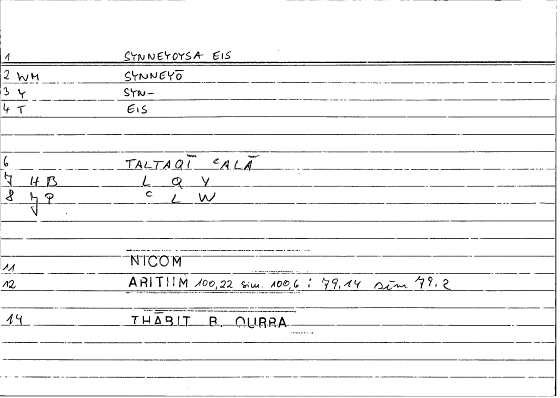 1 SYNNEYOYSA EIS
2 WM SYNNEYŌ
3 Y SYN-
4 T EIS
6 TALTAQĪ ʿALĀ
7 HB L Q Y
8 JP ʿ L W
11 NICOM
12 ARITHM 100,22 sim. 100,6 : 79,14 sim 79,2
14 THĀBIT B. QURRA